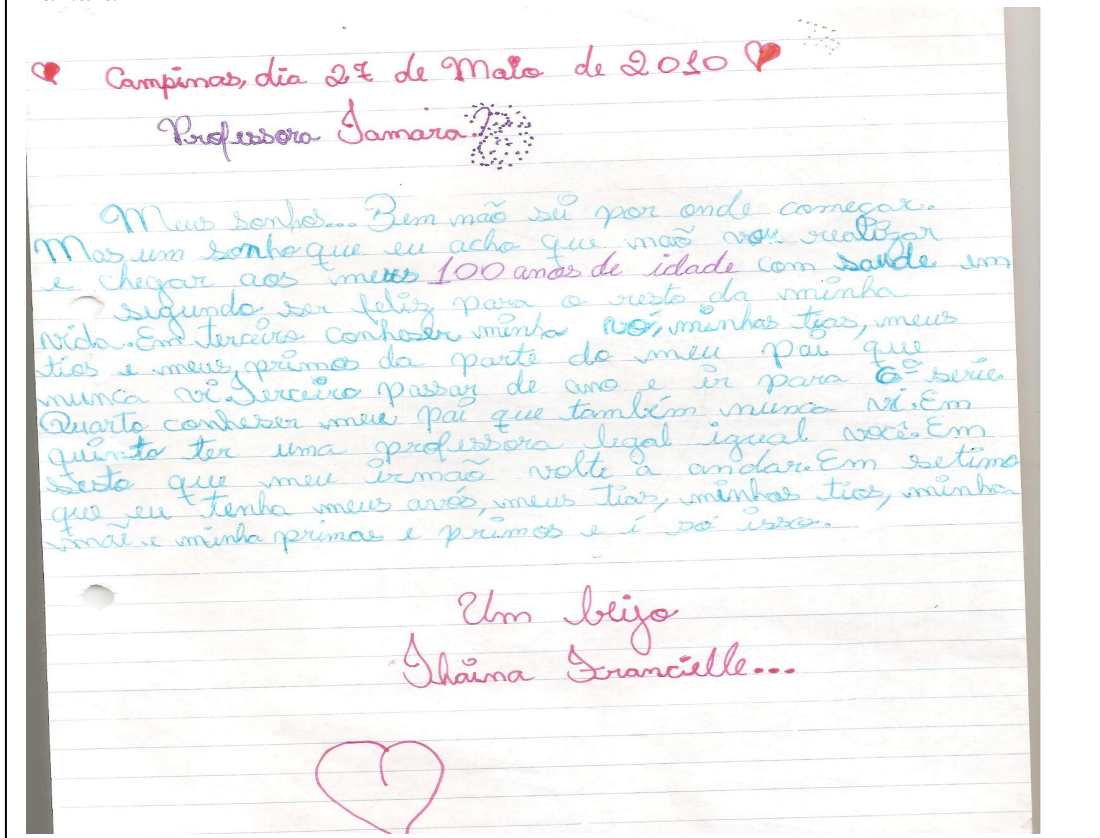 Campinas, dia 27 de Maio de 2010
Professora Tamara
Meus sonhos... Bem não sei por onde começar.
Mas um sonho que eu acho que não vou realizar
e chegar aos meus 100 anos de idade com saude em
segundo ser feliz para o resto da minha
vida. Em terceiro conheser minha vó, minhas tias, meus
tios e meus primos da parte do meu pai que
nunca vi. Terceiro passar de ano e ir para 6ª série.
Quarto conheser meu pai que também nunca vi. Em
quinto ter uma professora legal igual você. Em
sesto que meu irmão volte a andar. Em setimo
que eu tenha meus avós, meus tios, minhas tias, minha
mãe e minha primas e primos e é só isso.
Um beijo
Thaina Francielle...